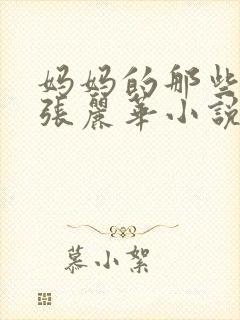 妈妈的那些
張麗華小說
慕小絮